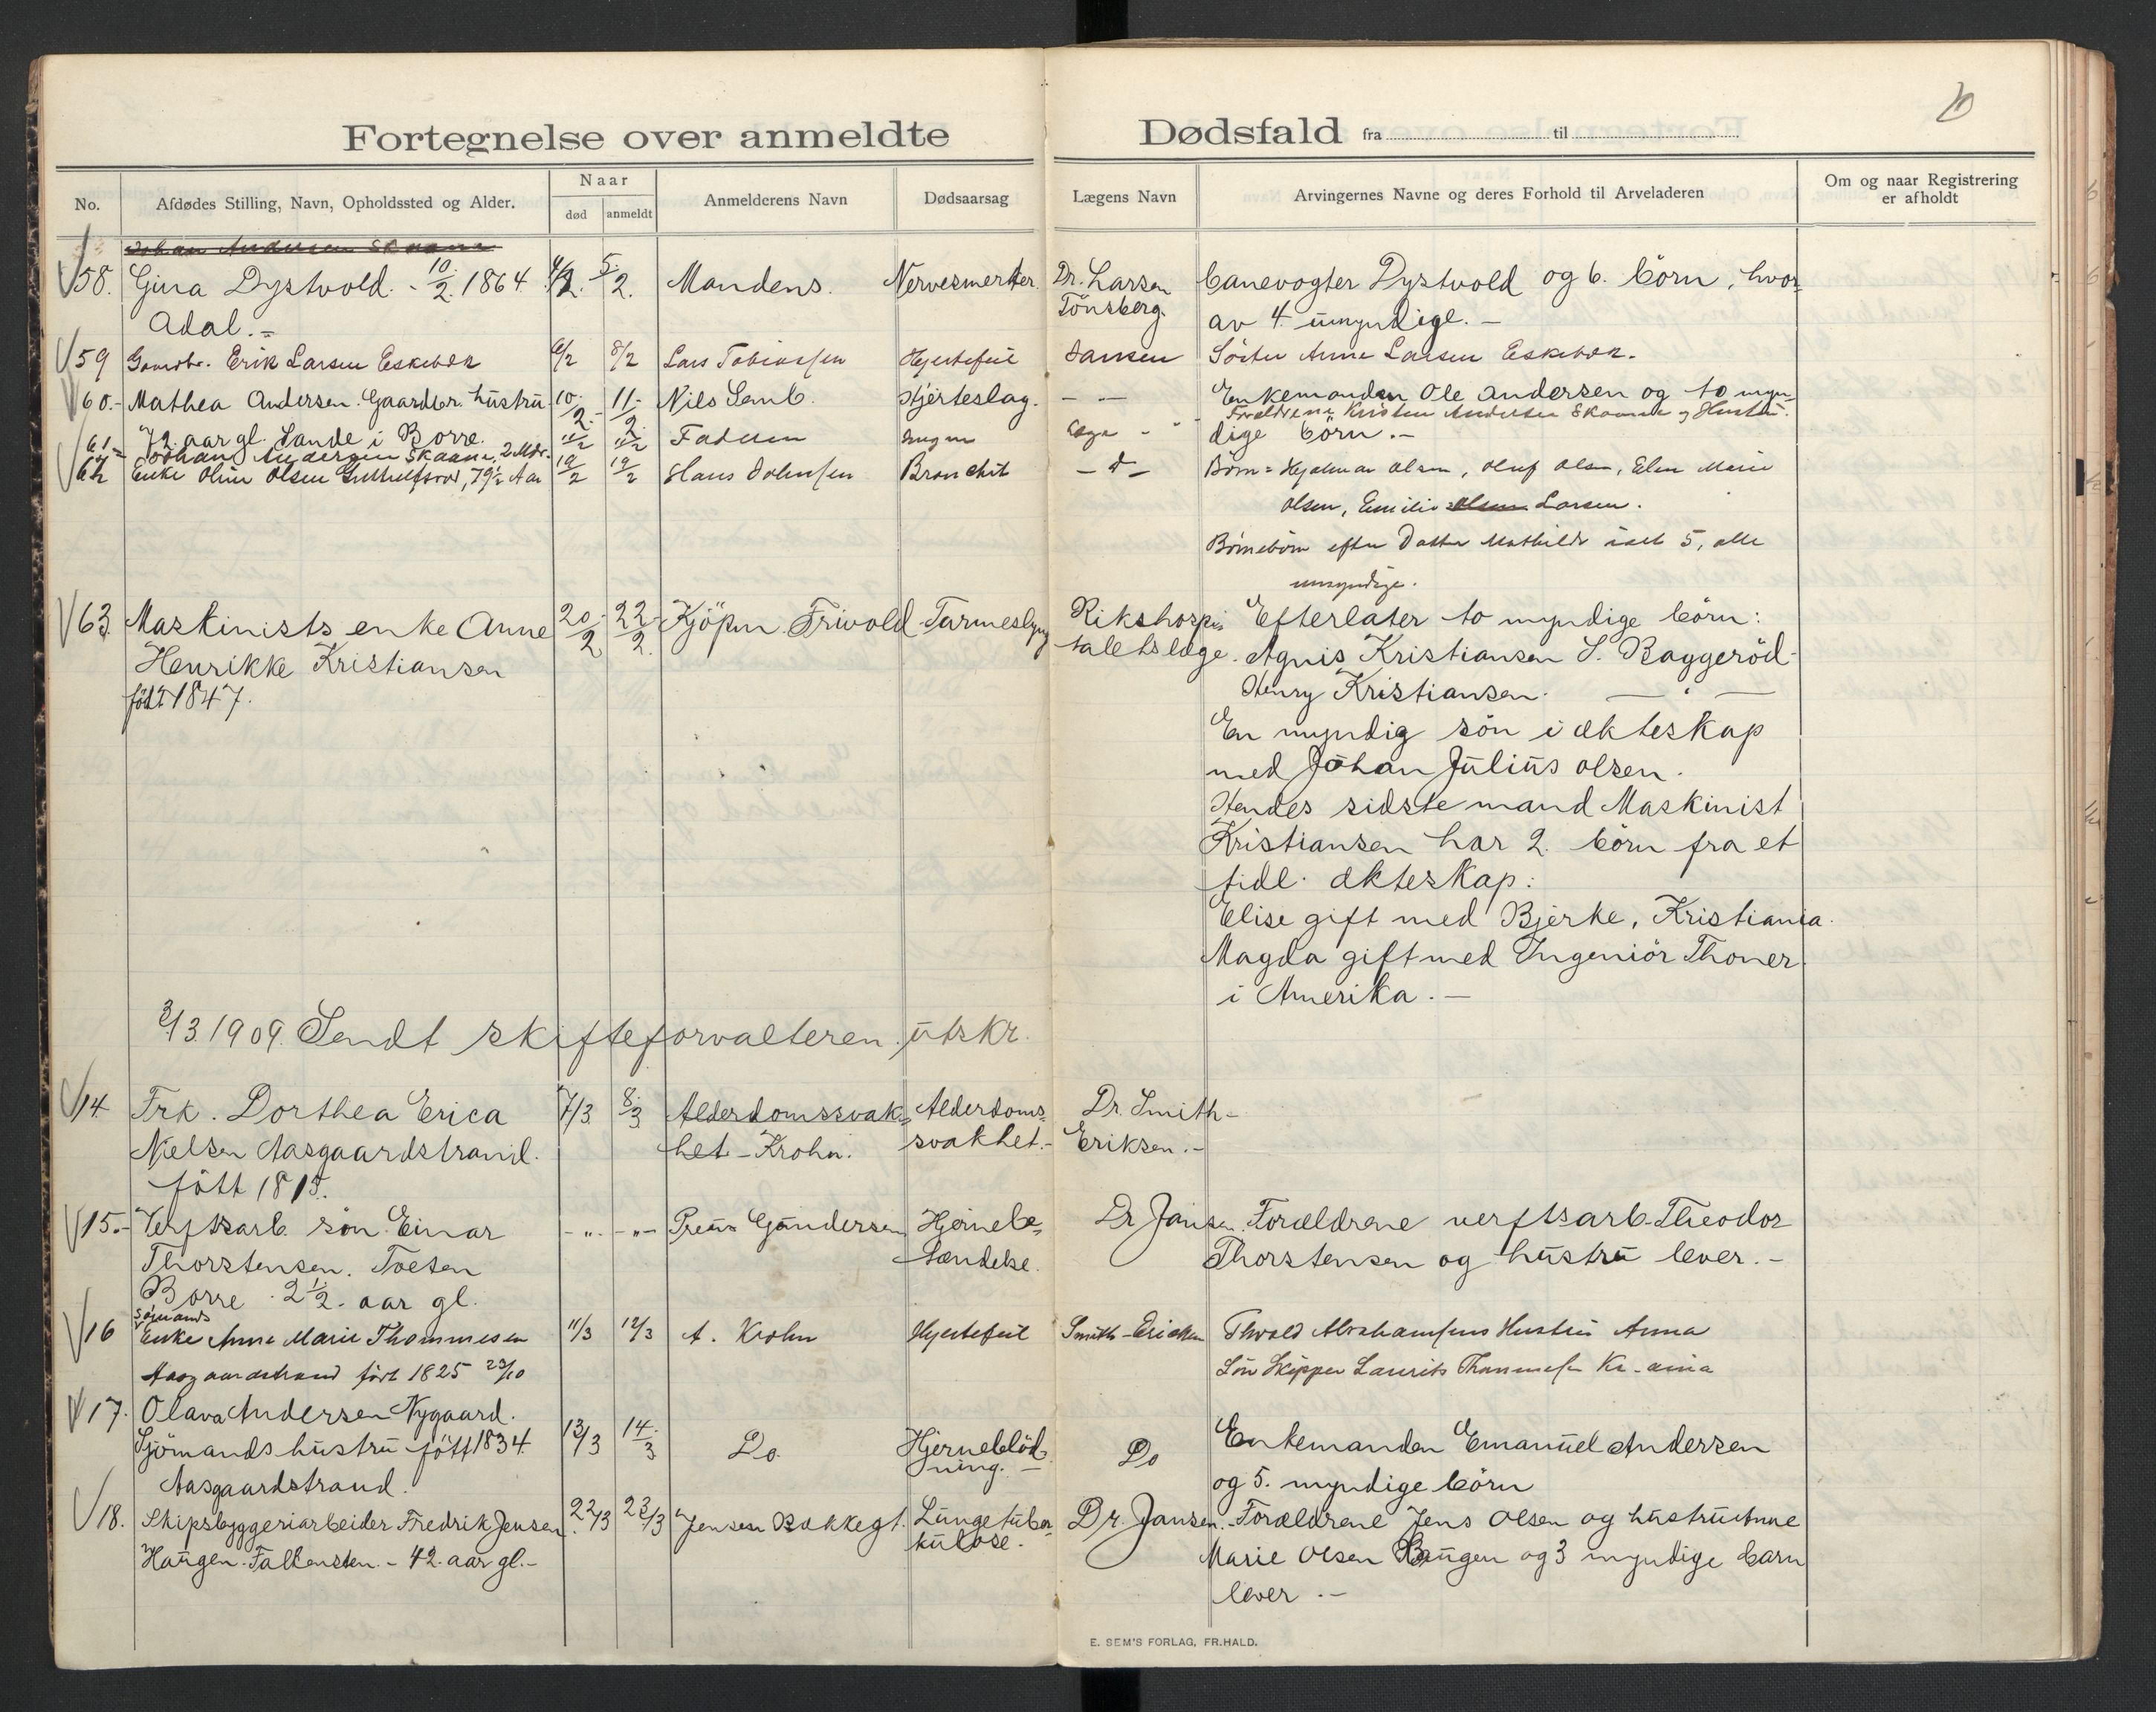 Fortegnelse over anmeldte Dødsfald fra til
No.
Afdødes Stilling, Navn, Opholdssted og Alder.
Naar
død
anmeldt
Anmelderens Navn
Dødsaarsag
Lægens Navn
Arvingernes Navne og deres Forhold til Arveladeren
Om og naar Registrering
er afholdt
Johan Andersen Skaane
58. Gina Dystvold. - 10/2 1864. 4/2. 5/2. Mandens. Nervesmerter. Dr. Larsen banevogter Dystvold og 6. børn, hvor
Adal.- Tönsberg. av 4 umyndige.-
59 Gaardbr. Erik Larsen Eskebæk 6/2 8/2 Lars Tobiassen Hjertefeil Jansen Söster Anne Larsen Eskebæk.
60.- Mathea Andersen. Gaardbr. hustru 10/2.- 11/2. Nils Semb. Hjerteslag. - " - Enkemanden Ole Andersen og to myn-
72 aar gl. Sande i Borre. dige börn.-
61.- Johan Andersen Skaane, 2 Mdr. 11/2 11/2 Faderen Ingen Læge - " Forældrene Kristen Andersen Skaane og Hustru.
62 Enke Oline Olsen 79½ Aar 10/2 19/2 Hans Johnsen Bronchit - d - Börn = Hjalmar Olsen, Oluf Olsen, Elen Marie
Olsen, Emilie Olsen Larsen.
Börnebörn efter Datter Mathilde 5, alle
umyndige.
63. Maskinists enke Anne 20/2 22/2. Kjöpm. Frivold Tarmeslyng Rikshospi- Efterlater to myndige börn:
Henrikke Kristiansen taletslæge. Agnis Kristiansen S. Baggeröd-
född 1847. Henry Kristiansen. - " -
En myndig sön i ækteskap
med Johan Julius Olsen.
Hendes sidste mand Maskinist
Kristiansen har 2. börn fra et
tidl. ækteskap:
Elise gift med Bjerke, Kristiania.
Magda gift med Ingeniör Thoner
i Amerika.-
3/3. 1909. Sendt skifteforvalteren utskr.
14. Frk. Dorthea Erica 7/3 8/3 Alderdomssvak= Alderdoms= Dr. Smith-
Nielsen Aasgaardstrand. het - Krohn. svakhet.- Eriksen.-
född 1815.
15.- Verftsarb. sön Einar - " - - " - Gundersen Hjernebe= Dr Jansen. Forældrene verftsarb. Theodor
Thorstensen. Toesen tændelse. Thorstensen og hustru lever.-
Borre. 2½. aar gl.
Sömands
16 Enke Anne Marie Thommesen 11/3 12/3 A. Krohn Hjertefeil Smith-Ericksen Thvald Abrahamsens Hustru Anna
Aasgaardstrand född 1825 23/10 Sön Skipper Laurits Thommesen Kr-ania
17. Olava Andersen Nygaard. 13/3 14/3 Do. Hjerneblöd- Do Enkemanden Emanuel Andersen
Sjömands hustru född 1834. ning.- og 5. myndige börn
Aasgaardstrand.
18. Skipsbyggeriarbeider Fredrik Jensen 22/3 23/3 Jensen Bakkegt. Lungetuber= Dr. Jansen. Forældrene Jens Olsen og hustru Anne
Haugen. Falkensten.- 42. aar gl.- kulose. Marie Olsen Haugen og 3 myndige barn
lever.-
E. SEM'S FORLAG, FR.HALD.